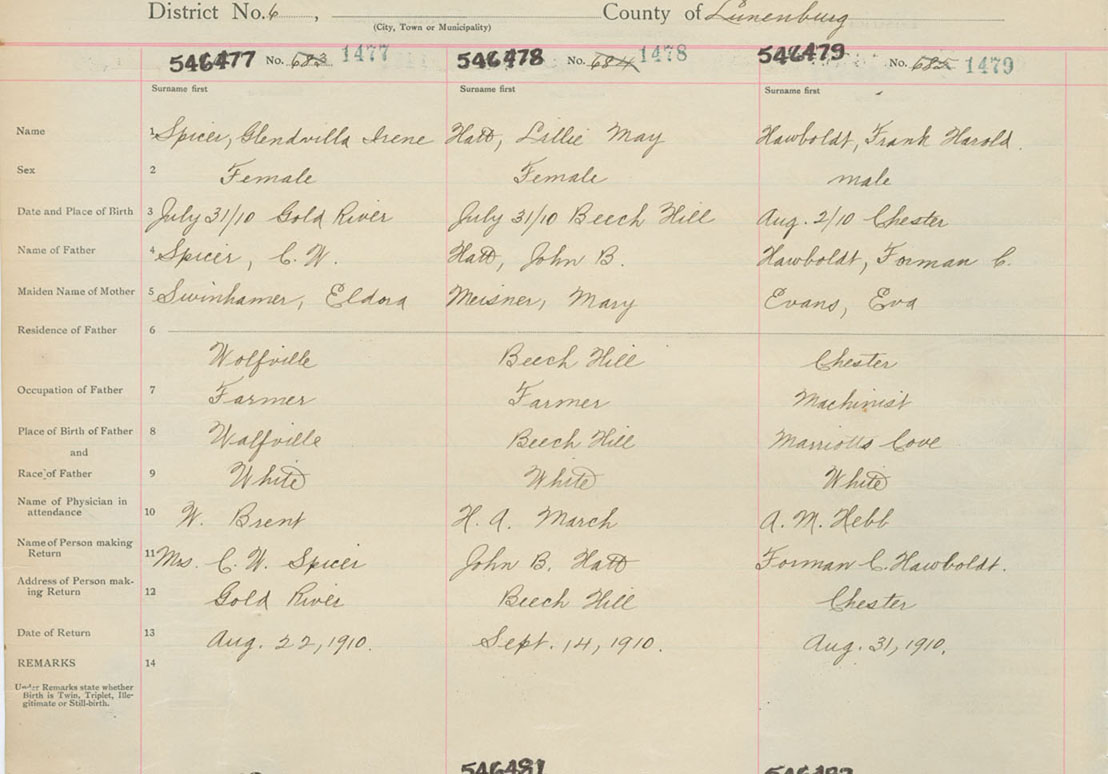 District No. 6, County of Lunenburg
(City, Town or Municipality)
546477 No. 683 1477 546478 No. 684 1478 546479 No. 685 1479
Surname first Surname first Surname first
Name 1 Spicer, Glendvilla Irene Hatt, Lillie May Hawboldt, Frank Harold.
Sex 2 Female Female male
Date and Place of Birth 3 July 31/10 Gold River July 31/10 Beech Hill Aug. 2/10 Chester
Name of Father 4 Spicer, C. W. Hatt, John B. Hawboldt, Forman C.
Maiden Name of Mother 5 Swinhamer, Eldora Meisner, Mary Evans, Eva
Residence of Father 6
Wolfville Beech Hill Chester
Occupation of Father 7 Farmer Farmer Machinist
Place of Birth of Father 8 Walfville Beech Hill Marriotts Cove
and
Race of Father 9 White White White
Name of Physician in
attendance 10 W. Brent H. A. March A. M. Hebb
Name of Person making
Return 11 Mrs. C. W. Spicer John B. Hatt Forman C. Hawboldt.
Address of Person mak-
ing Return 12 Gold River Beech Hill Chester
Date of Return 13 Aug. 22, 1910. Sept. 14, 1910. Aug. 31, 1910.
REMARKS 14
Under Remarks state whether
Birth is Twin, Triplet, Ille-
gitimate or Still-birth.
546481